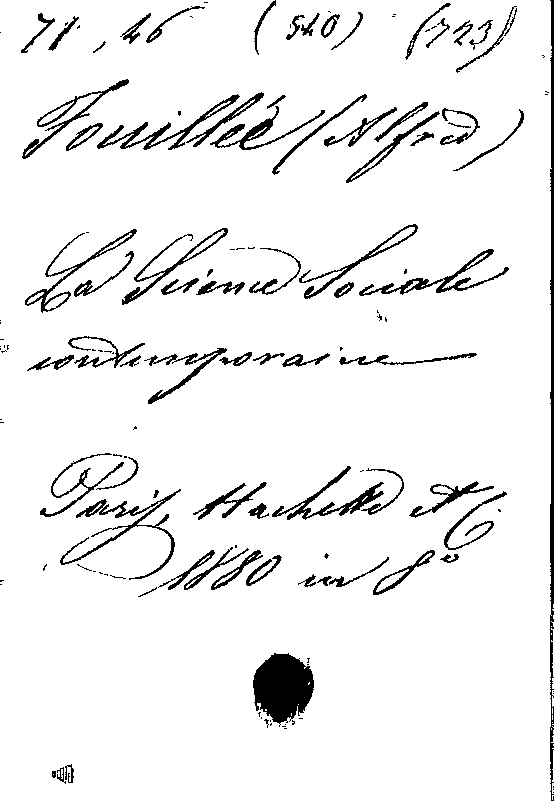 71, 26 (540) (723)
Fouillée (Alfred)
La Science Sociale
contemporaine
Paris, Hachette et C.
1880 in 8º